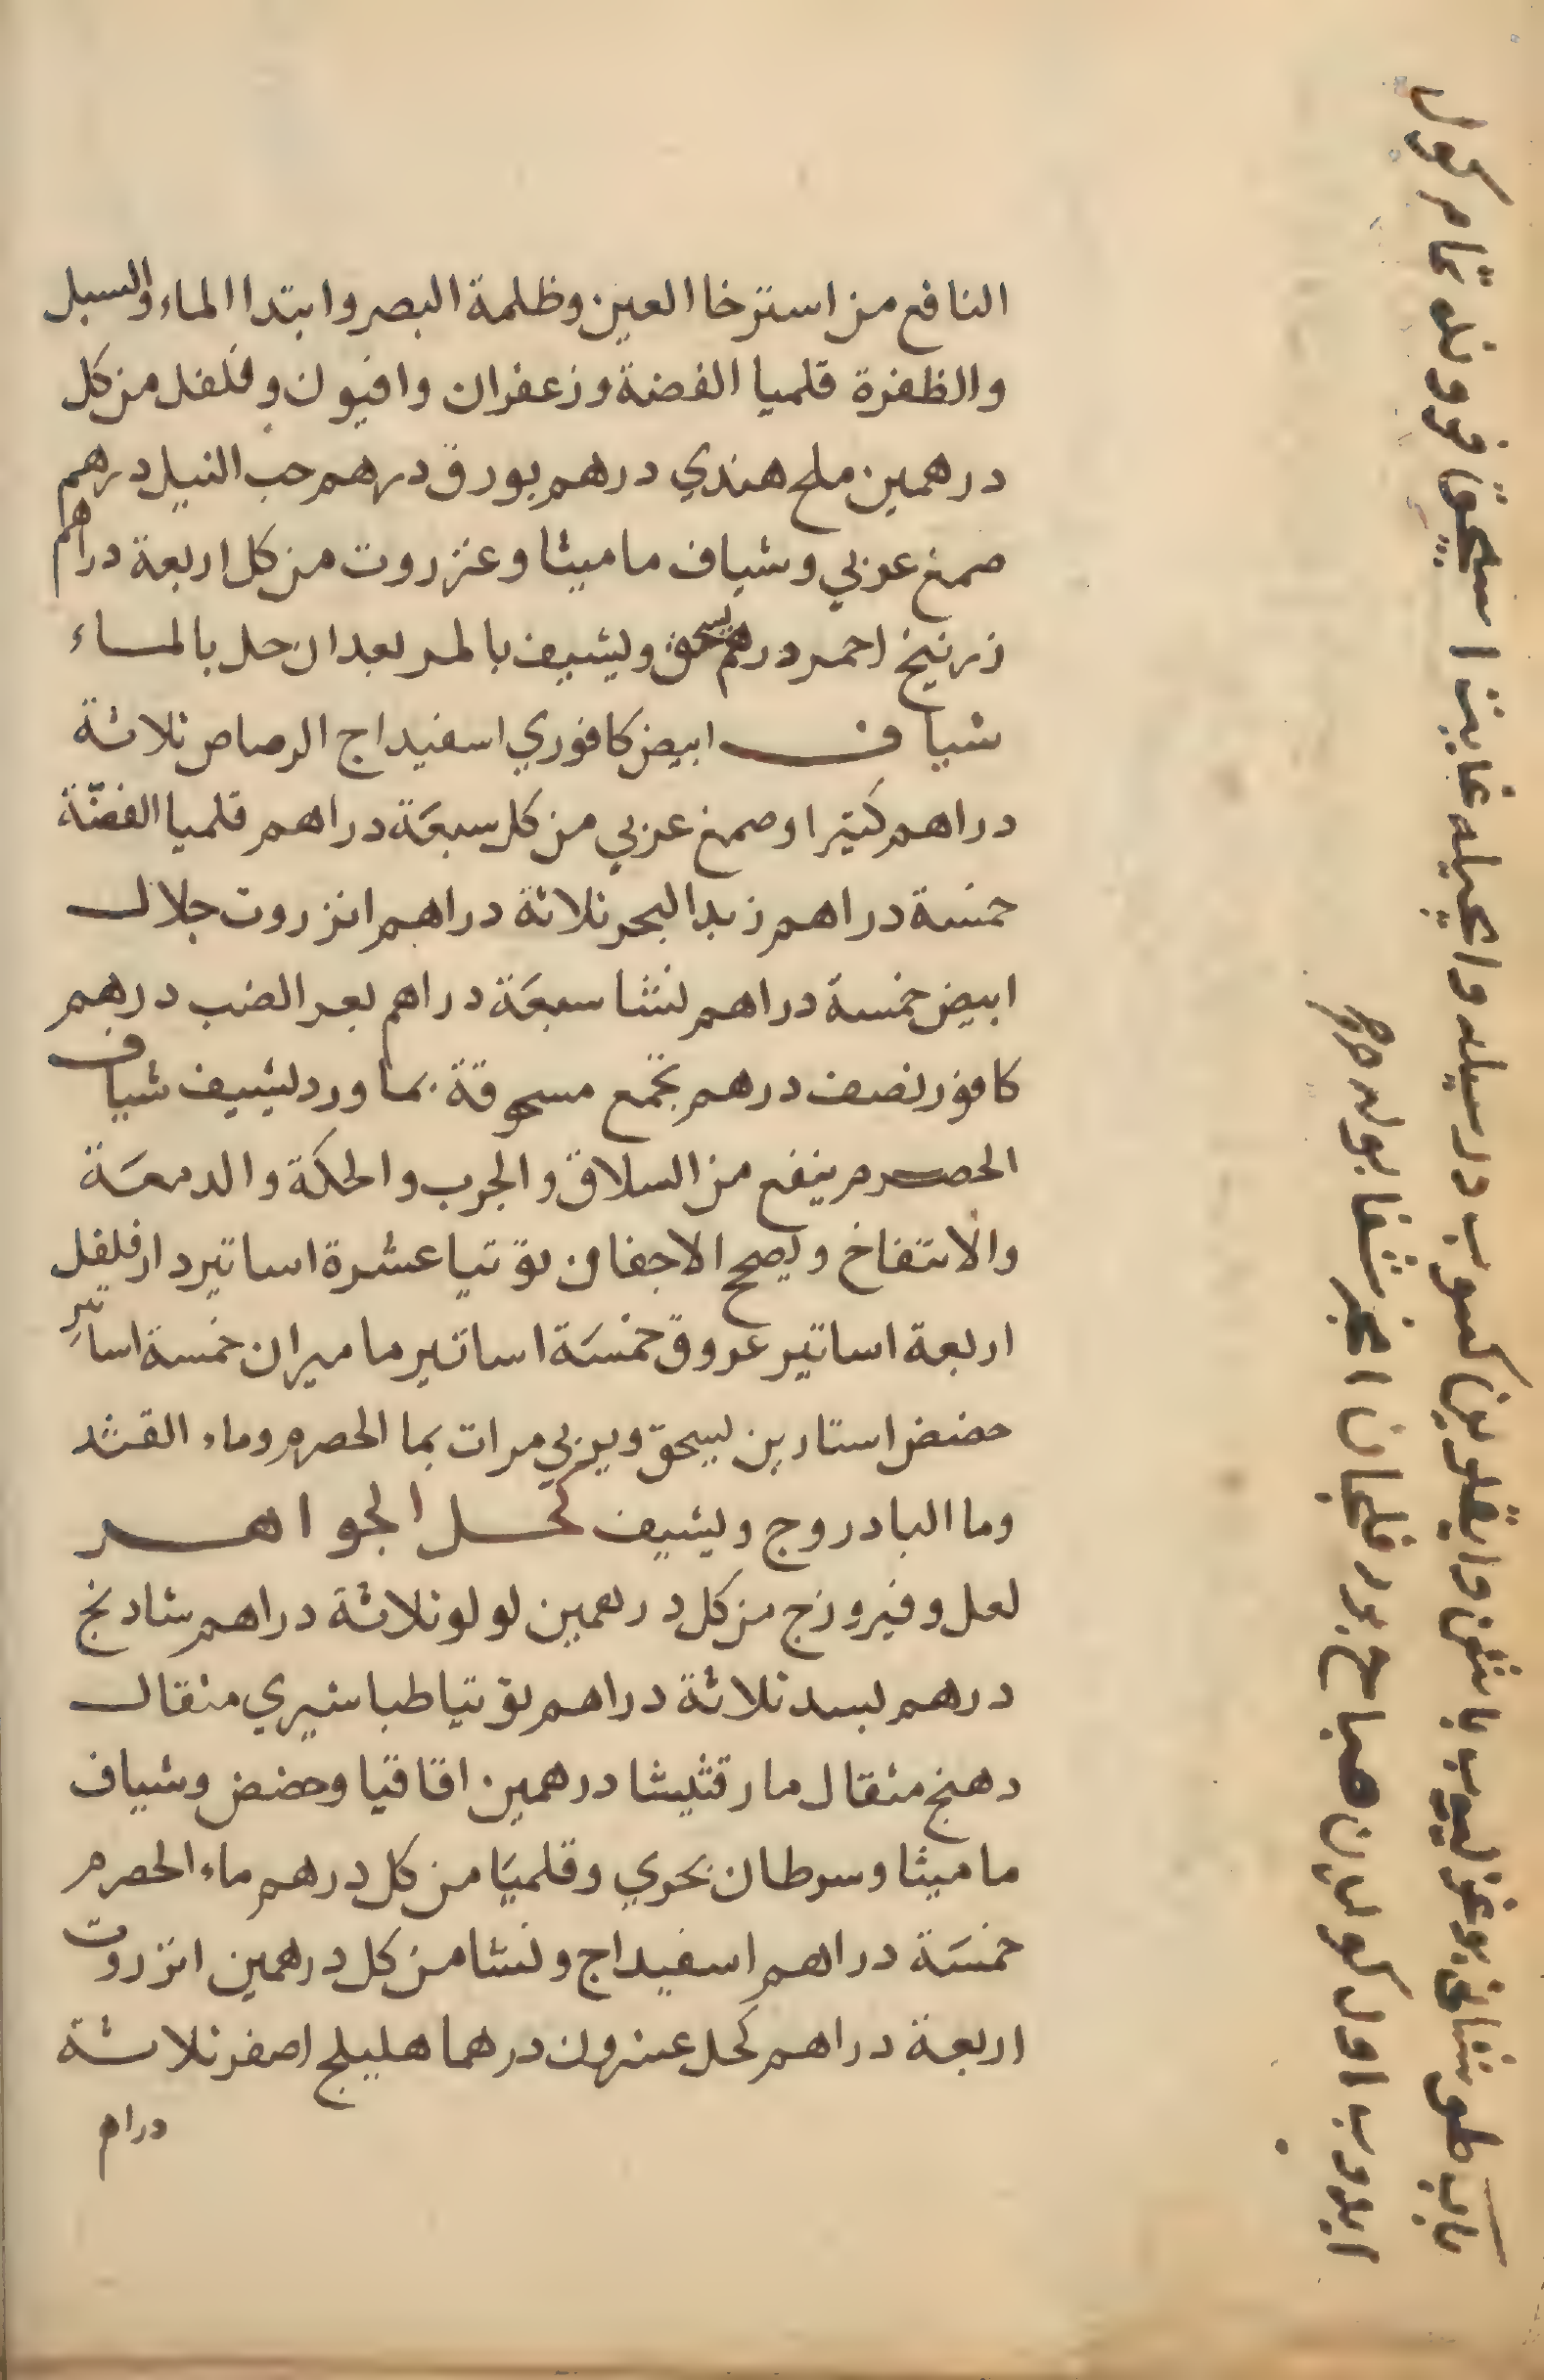 النافع من استرخا العين وظلمة البصر وابتدا الماء والسبل
والظفرة قلميا الفضة وزعفران وافيون وفلفل من كل
درهمين ملح هندي درهم بورق درهم حب النيل درهم
صمغ عربي وشياف ماميثا وعنزروت من كل اربعة دراهم
زرنيخ احمر درهم يسحق ويشيف بالمر بعد ان حل بالمساء
شياف ابيض كافوري اسفيداج الرصاص ثلاثة
دراهم كثيرا وصمغ عربي من كل سبعة دراهم قلميا الفضّة
خمسة دراهم زبد البحر ثلاثة دراهم انزروت جلال
ابيض خمسة دراهم نشا سبعة دراهم بعر الضب درهم
كافور نصف درهم تجمع مسحوقة بما ورد ليشيف شياف
الحصرم ينفع من السلاق والجرب والحكة والدمعة
والانتفاخ ويصحح الاجفان توتيا عشرة اساتير دار فلفل
اربعة اساتير عروق خمسة اساتير ماميران خمسة اساتير
حضض استارين يسحق ويربي مرات بما الحصرم وماء القثد
وما البادروج ويشيف كحل الجواهر
لعل وفيروزج من كل درهمين لولو ثلاثة دراهم شادنج
درهم بسد ثلاثة دراهم توتيا طباشيري مثقال
دهنج مثقال مارقشيشا درهمين اقاقيا وحضض وشياف
ماميثا وسرطان بحري وقلميا من كل درهم ماء الحصرم
خمسة دراهم اسفيداج ونشا من كل درهمين انزروت
اربعة دراهم كحل عشرون درهما هليلج اصفر ثلاثة
دراهم
باب طوشنانى بوغزليوب باشن وايقلرين كسوب درسيله وايچيله غايت اسيجق فرونده تمام كول
ايدوب اول كولدين صباح بر فلجان ايچر شفا بولور